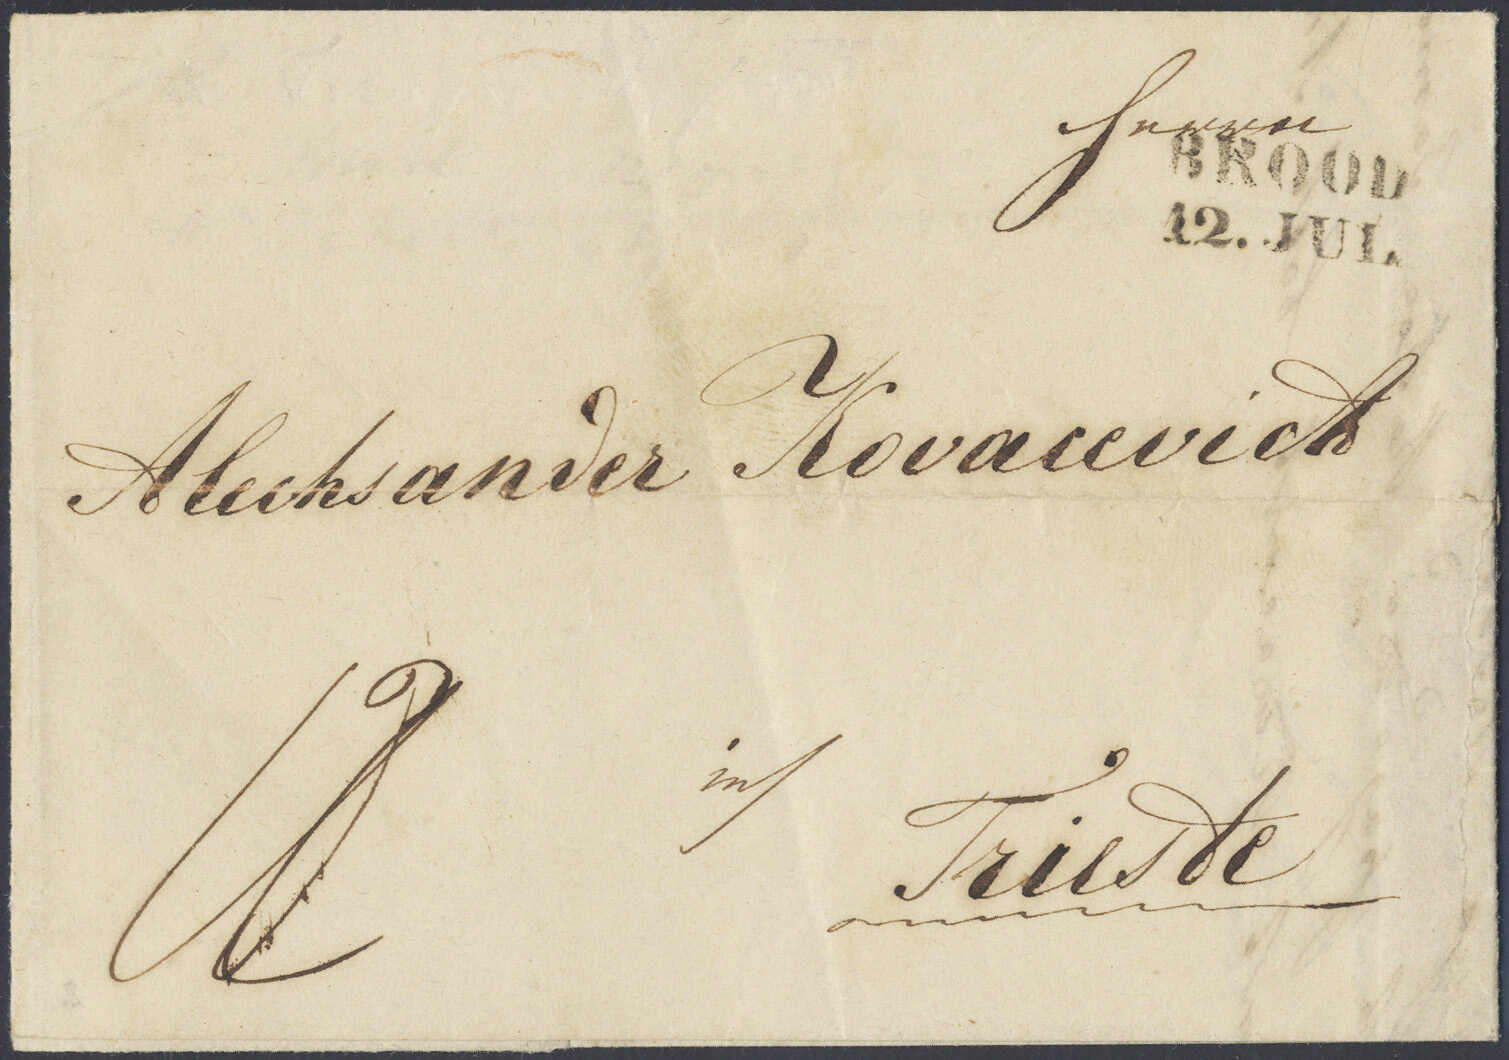 Herrn
BROOD
12. JUL.
Alechsander Kovacevich
in
Trieste